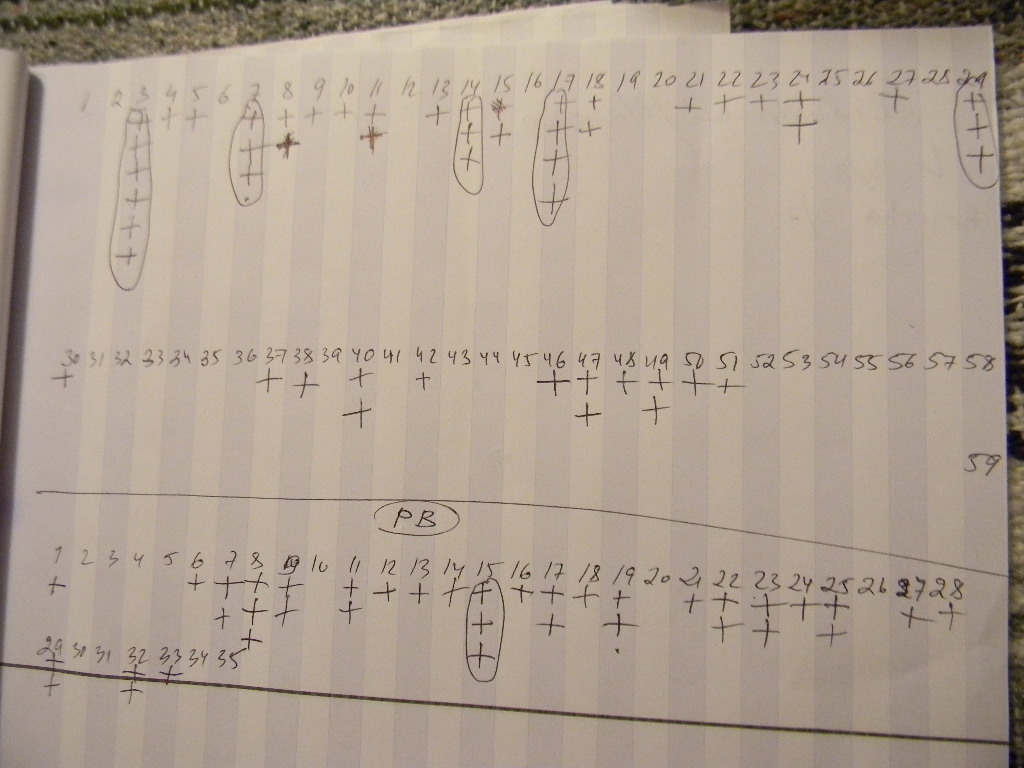 1 2 3 4 5 6 7 8 9 10 11 12 13 14 15 16 17 18 19 20 21 22 23 24 25 26 27 28 29
30 31 32 33 34 35 36 37 38 39 40 41 42 43 44 45 46 47 48 49 50 51 52 53 54 55 56 57 58
59
PB
1 2 3 4 5 6 7 8 9 10 11 12 13 14 15 16 17 18 19 20 21 22 23 24 25 26 27 28
29 30 31 32 33 34 35